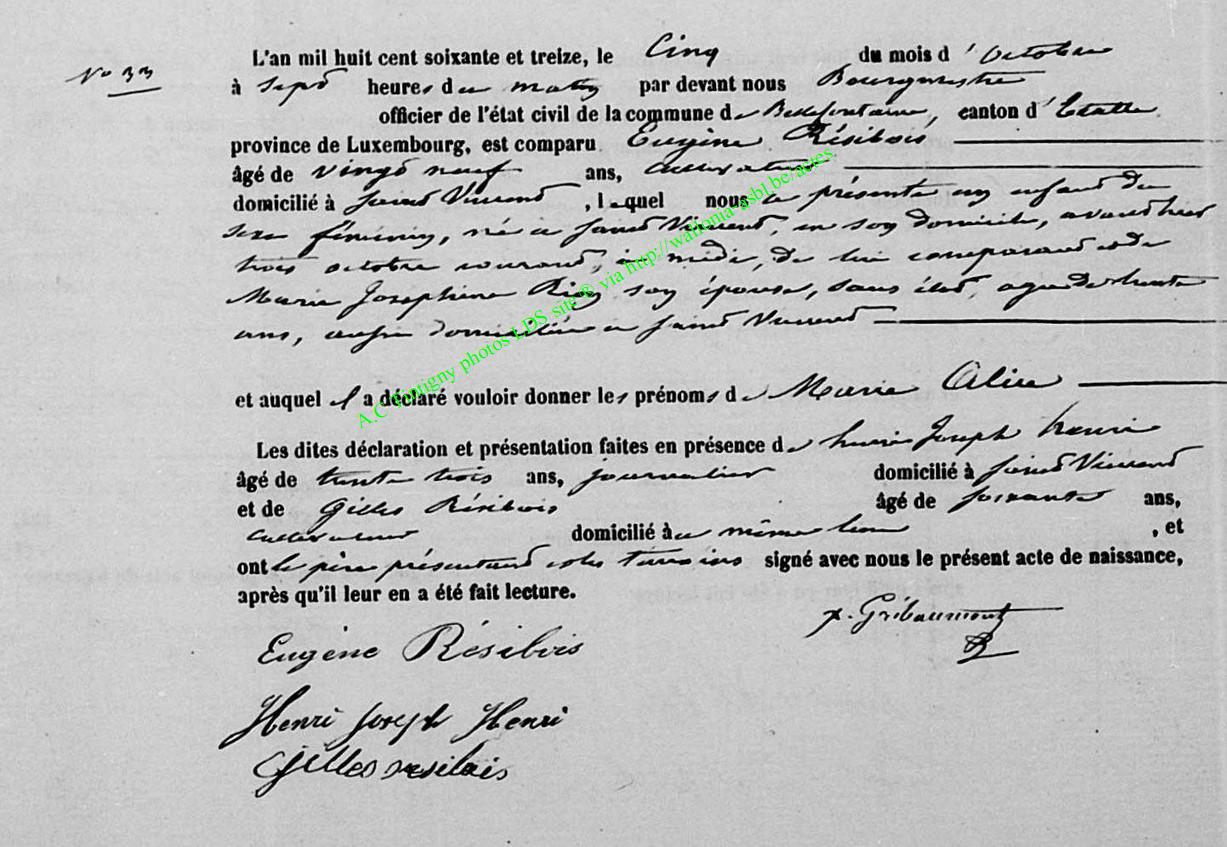 N° 33
L'an mil huit cent soixante et treize, le Cinq du mois d'Octobre
à sept heures du matin par devant nous Bourgmestre
officier de l'état civil de la commune de Bellefontaine, canton d'Etalle
province de Luxembourg, est comparu Eugène Résibois
âgé de vingt neuf ans, cultivateur
domicilié à Saint Vincent, lequel nous a présenté un enfant du
sexe féminin, né à Saint Vincent, en son domicile, avant hier
trois octobre courant, à midi, de lui comparant et de
Marie Joséphine son épouse, sans état, agée de trente
ans, aussi domiciliée à Saint Vincent
et auquel il a déclaré vouloir donner les prénoms de Marie Alice
Les dites déclaration et présentation faites en présence de Joseph Henri
âgé de trente trois ans, journalier domicilié à Saint Vincent
et de Gilles Résibois âgé de soixante ans,
cultivateur domicilié à même lieu, et
ont le père présentant et les temoins signé avec nous le présent acte de naissance,
après qu'il leur en a été fait lecture.
Gribaumont
Eugène Résibois
Henri Joseph Henri
Gilles resibois
A.C Tintigny photos LDS site® via http://wallonia-asbl.be/actes.